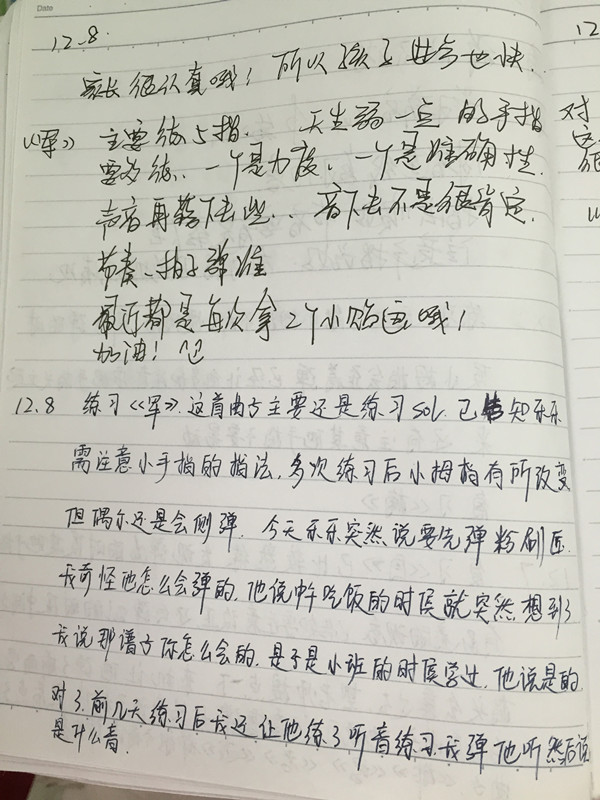 Date
12.8
家长很认真哦！所以孩子进步也快.
《军》 主要练5指. 天生弱一点的手指
要多练、一个是力度、一个是准确性.
声音再落下去些.. 音下去不是很肯定.
节奏、拍子弹准
最近都是每次拿2个小贴画哦！
加油！
12.8 练习《军》.这首曲子主要还是练习sol. 已告知乐乐
需注意小手指的指法,多次练习后小拇指有所改变
但偶尔还是会侧弹. 今天乐乐突然说要先弹粉刷匠.
我奇怪他怎么会弹的.他说中午吃饭的时候就突然想到了
我说那谱子你怎么会的.是于是小班的时候学过.他说是的.
对了.前几天练习后我还让他练了听音练习.我弹他听 然后说
是什么音.
12
对